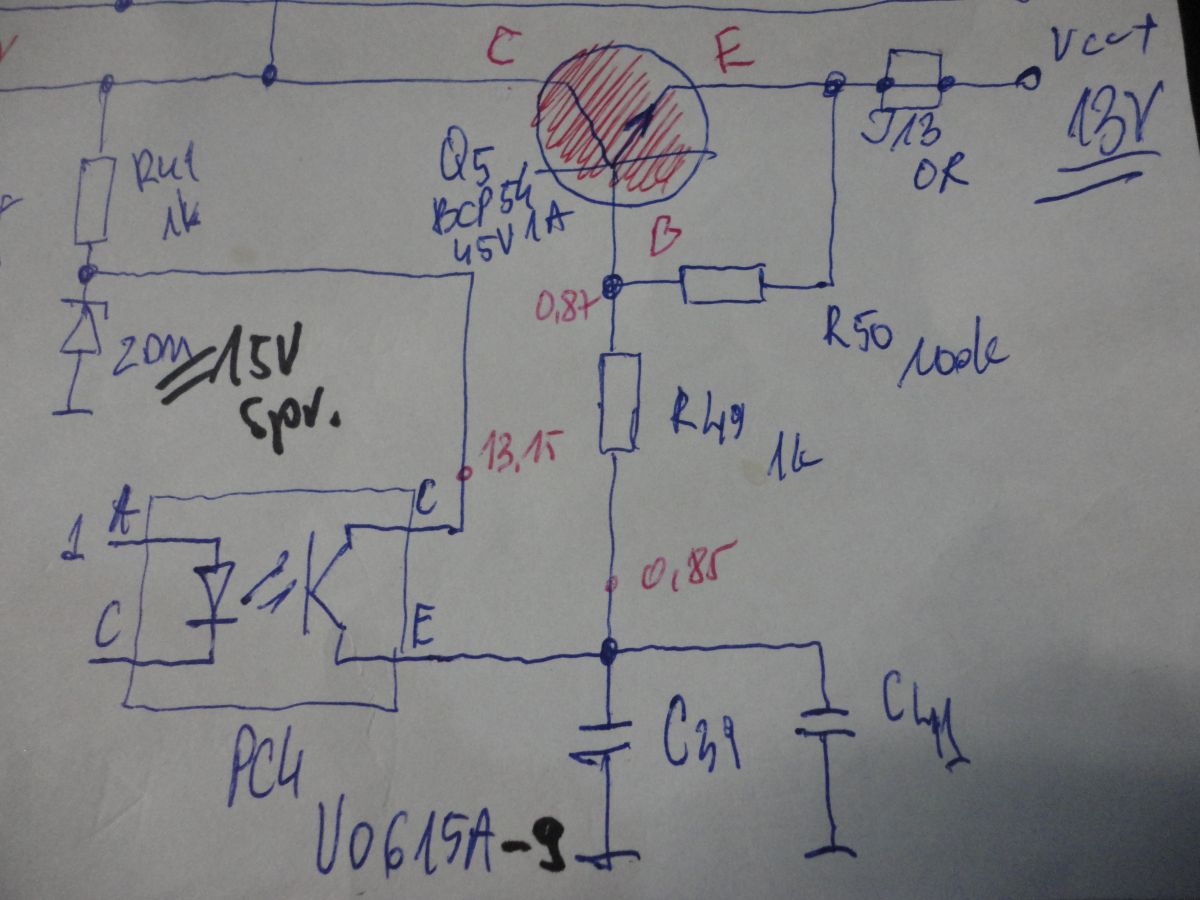 C
E
Vcc+
13V
J13
0R
R41
1k
Q5
BCP54
45V 1A
B
0,87
R50
100k
15V
spr.
R49
1k
13,15
A
C
1
0,85
C
E
C39
C41
PC4
VO615A-9